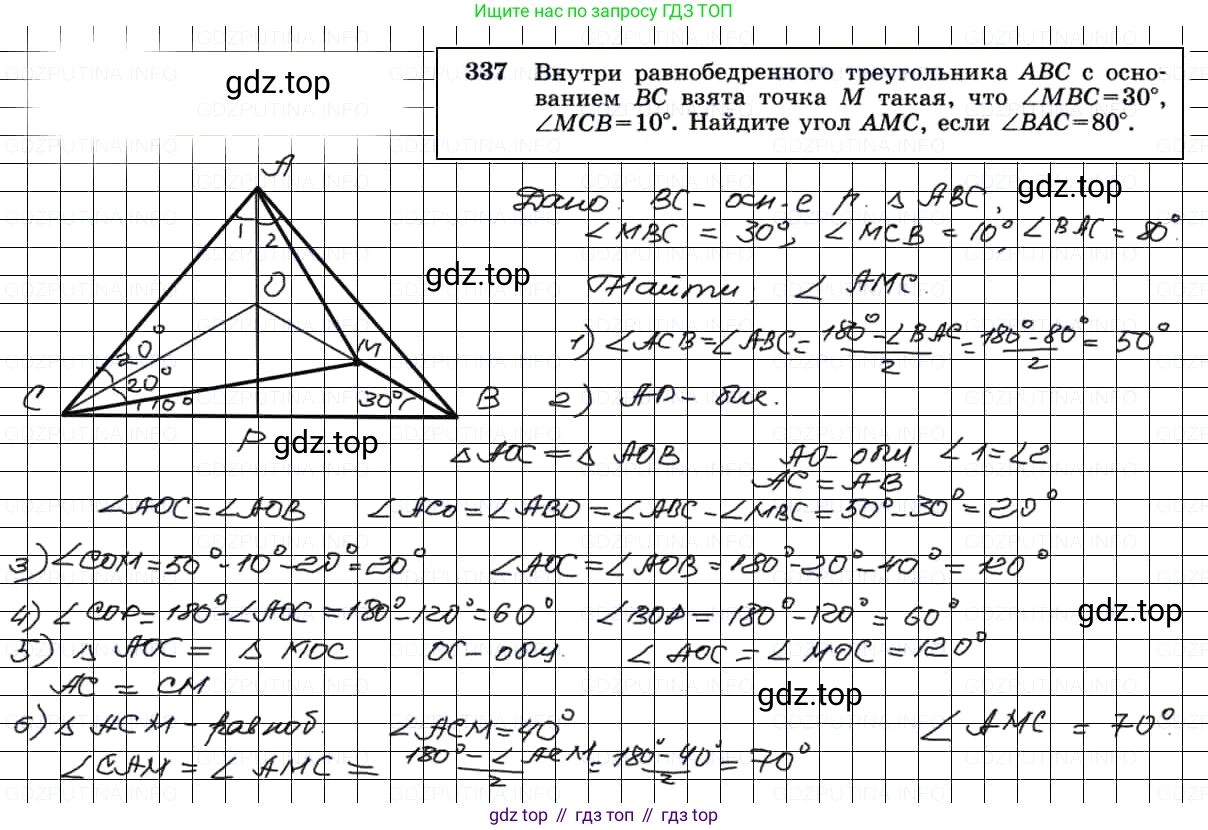 Ищите нас по запросу ГДЗ ТОП
gdz.top
337 Внутри равнобедренного треугольника ABC с осно-
ванием BC взята точка M такая, что ∠MBC=30°,
∠MCB=10°. Найдите угол AMC, если ∠BAC=80°.
A
1 2
O
20°
20°
10°
M
30°
C
B
P
gdz.top
Дано: BC - осн-е р. △ ABC,
gdz.top
∠MBC = 30°, ∠MCB = 10° ∠BAC = 80°.
gdz.top
Найти: ∠ AMC.
1) ∠ACB=∠ABC= 180°-∠BAC/2 = 180°-80°/2 = 50°
2) AP - бис.
△AOC = △ AOB AO - общ ∠1=∠2
AC = AB
∠AOC=∠AOB ∠ACO=∠ABO=∠ABC-∠MBC=50°-30°=20°
3) ∠COM=50°-10°-20°=20° ∠AOC=∠AOB=180°-20°-40°=120°
4) ∠COP=180°-∠AOC=180°-120°=60° ∠BOP=180°-120°=60°
gdz.top
5) △ AOC = △ MOC OC - общ. ∠AOC=∠MOC=120°
AC = CM
gdz.top
6) △ACM - равноб. ∠ACM=40° ∠AMC = 70°.
∠CAM = ∠AMC = 180°-∠ACM/2 = 180°-40°/2 = 70°
gdz.top // gdz.top // gdz.top